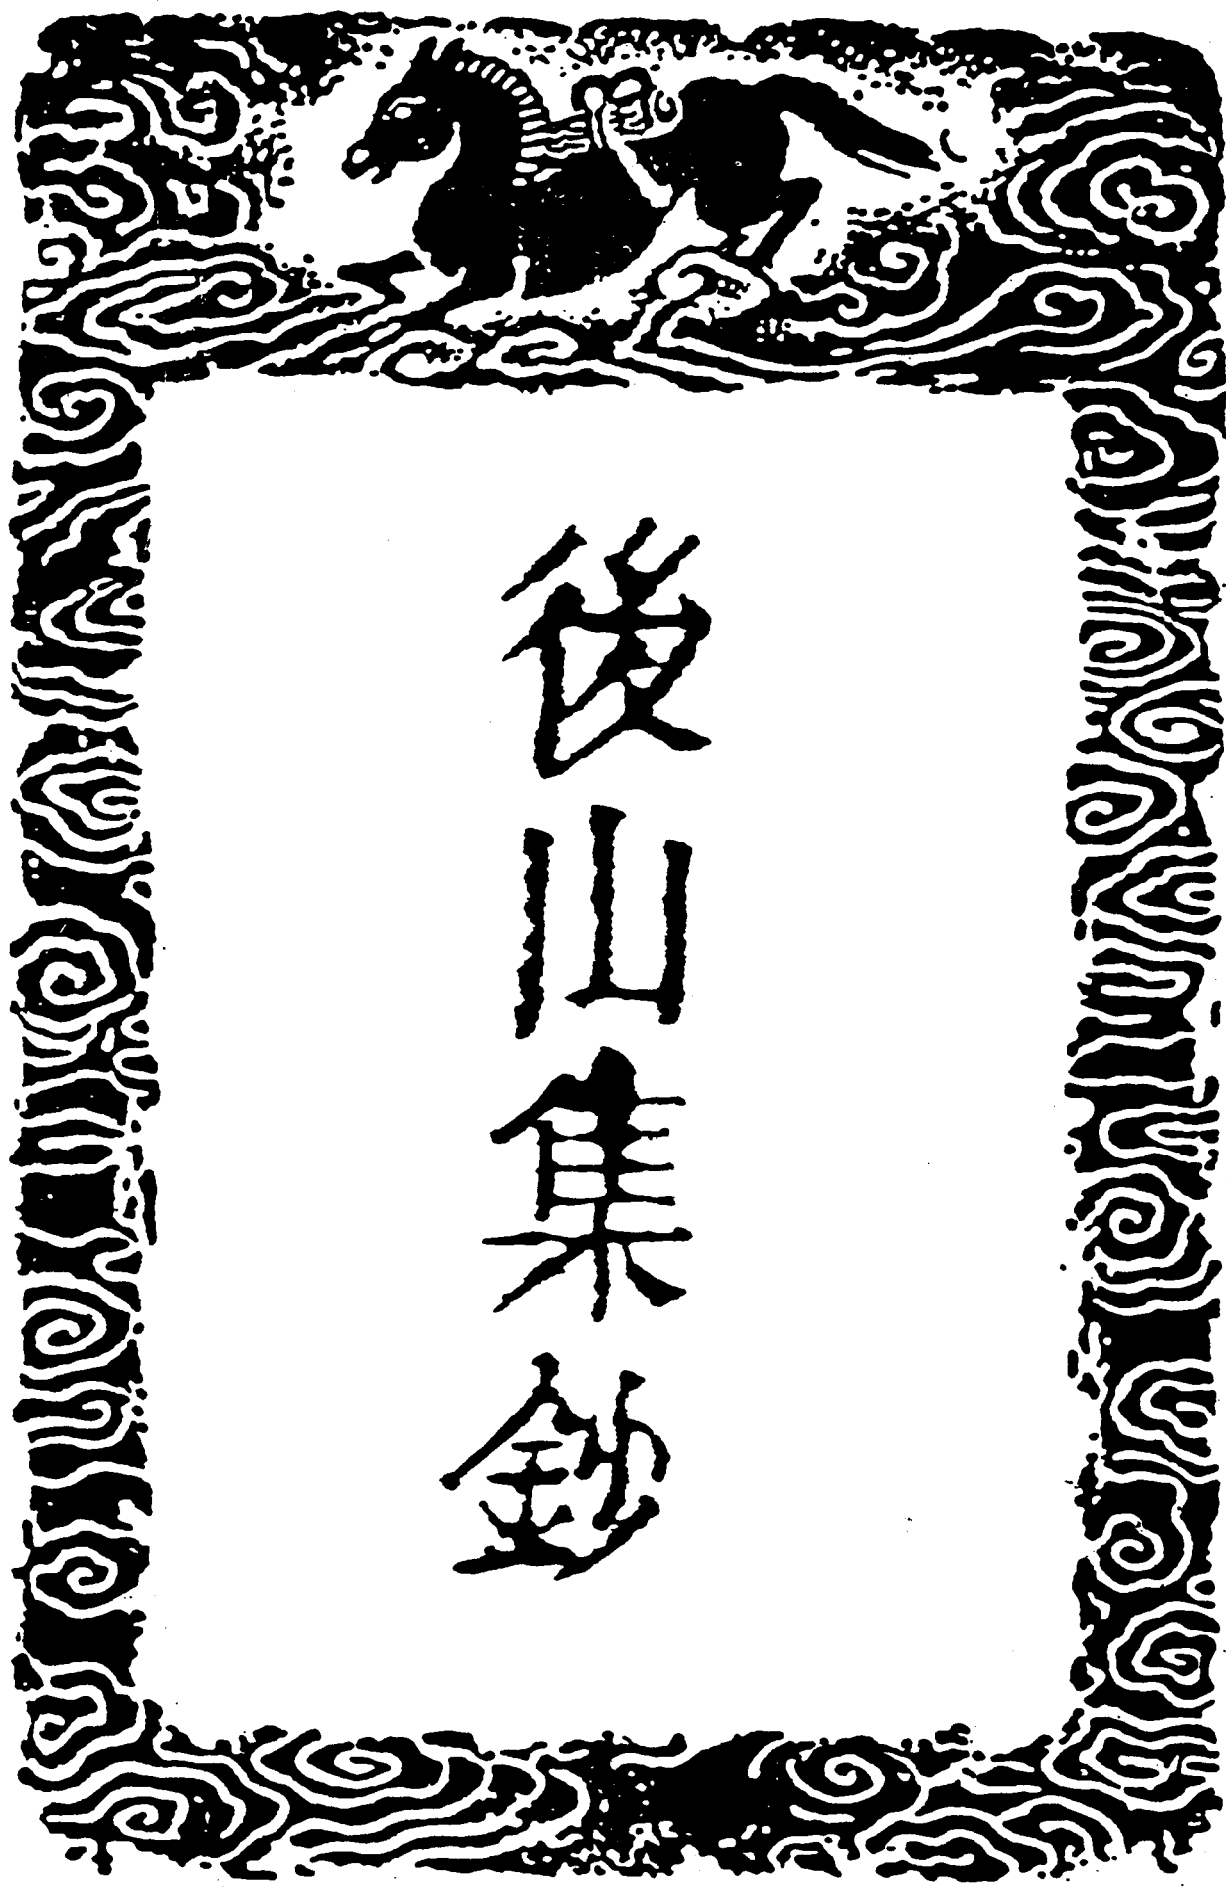 後山集鈔